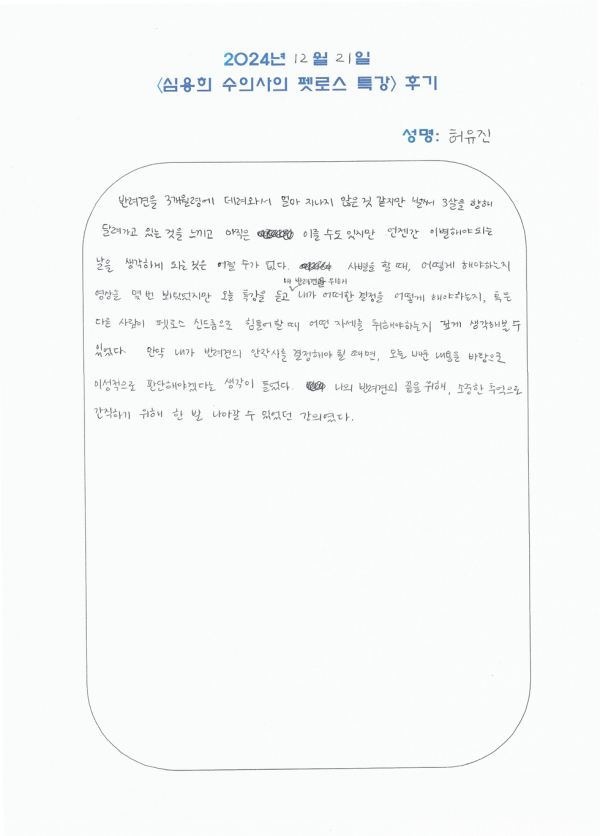 2024년 12월 21일
<심용희 수의사의 펫로스 특강> 후기
성명: 허유진
반려견을 3개월령에 데려와서 얼마 지나지 않은 것 같지만 벌써 3살을 향해
달려가고 있는 것을 느끼고 아직은 이를 수도 있지만 언젠간 이별해야 되는
날을 생각하게 되는 것은 어쩔 수가 없다. 사별을 할 때, 어떻게 해야하는지
내 반려견을 위하여
영상을 몇 번 봐왔었지만 오늘 특강을 듣고 내가 어떠한 결정을 어떻게 해야하는지, 혹은
다른 사람이 펫로스 신드롬으로 힘들어할 때 어떤 자세를 취해야하는지 깊게 생각해볼 수
있었다. 만약 내가 반려견의 안락사를 결정해야 될 때면, 오늘 배운 내용을 바탕으로
이성적으로 판단해야겠다는 생각이 들었다. 나의 반려견의 끝을 위해, 소중한 추억으로
간직하기 위해 한 발 나아갈 수 있었던 강의였다.